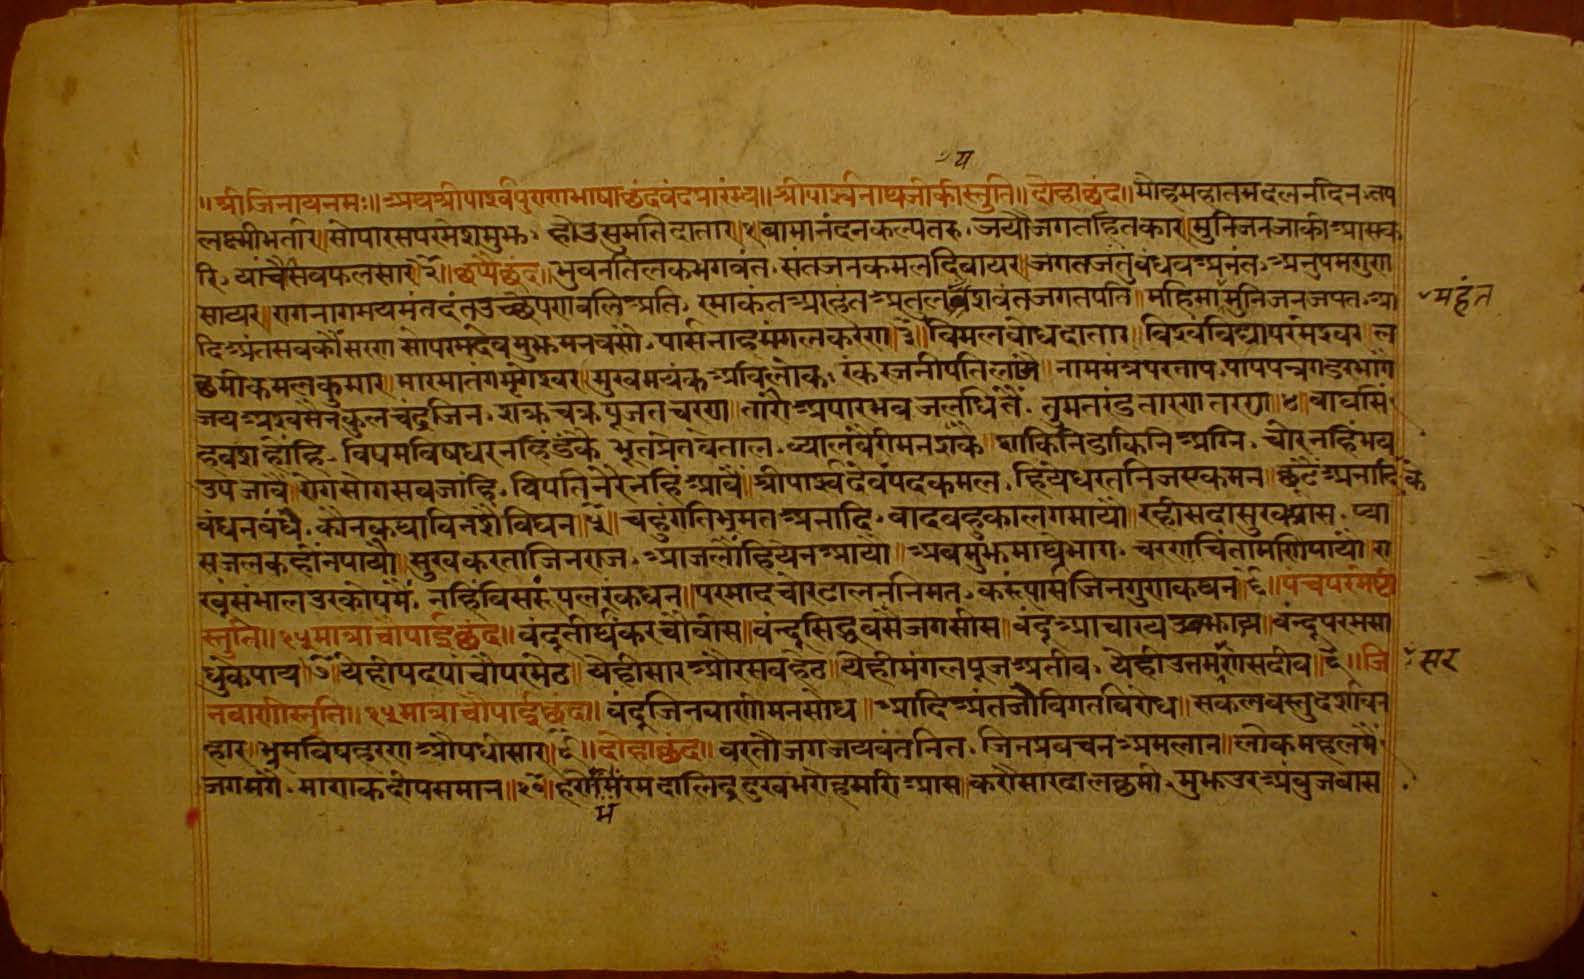 य
॥श्रीजिनायनमः॥ अथश्रीपार्श्वपुराणभाषाछंदवंदप्रारंभ्य॥श्रीपार्श्वनाथजीकीस्तुति॥दोहाछंद॥मोहमहातमदलनदिन.तप
लक्ष्मीभर्तार॥सोपारसपरमेशमुझ.होउसुमतिदातार॥१॥वामानंदनकल्पतरु.जयौजगतहितकार॥मुनिजनजाकीआसक
रि.याचैसवफलसार॥२॥छप्पैछंद॥भुवनतिलकभगवंत.संतजनकमलदिवायर॥जगतजंतुवंधवअनंत.अनुपमगुण
सायर॥रागनागमयमंतदंतउच्छेपणवलिअति.रमाकंतअरहंतअतुलजशवंतजगतपति॥महिमामुनिजनजपत.आ
महंत
दिअंतसवकौंसरण॥सोपरमदेवमुझमनवसो.पार्सनाहमंगलकरण॥३॥विमलवोधदातार॥विश्वविद्यापरमेश्वर॥ल
छमीकमलकुमार॥मारमातंगमृगेश्वर॥मुखमयंकअविलोक.रंकरजनीपतिलाजै॥नाममंत्रपरताप.पापपन्नगडरभाग
जयअश्वसेनकुलचंद्रजिन.शक्रचक्रपूजतचरण॥तारौअपारभवजलधितैं.तुमतरंडतारणतरण॥४॥वाघसिं
हवशहोंहि.विषमविषधरनहिंडंकै॥भूतप्रेतवेताल.व्यालवैरीमनशंकै॥शाकिनिडाकिनिअग्नि.चोरनहिंभय
उपजावै॥रोगसोगसवजांहि.विपतिनेरैनहिंआवैं॥श्रीपार्श्वदेवपदकमल.हियेधरतनिजएकमन॥छुटेअनादिके
वंधनवंधे.कौनकथाविनशैविघन॥५॥चहुंगतिभ्रमतअनादि.वादवहुकालगमायो॥रहीसदासुखआस.प्या
सजलकहूंनपायौ॥सुखकरताजिनराज.आजलोंहियेनआयो॥अवमुझमाथेभाग.चरणचिंतामणिपायो॥रा
खूंसंभालउरकोषमें.नहिंविसरूंपलरंकधन॥परमादचोरटालननिमत.करूंपासजिनगुणकथन॥६॥पंचपरमेष्टी
स्तुति॥१५मात्राचौपाईछंद॥वंदूतीर्थंकरचौवीस॥वंन्दूसिद्धवसेजगसीस॥वंदूआचारयउवझाय॥वंन्दूपरमसा
धुकेपाय॥७॥येहीपदपांचोपरमेठ॥येहीसारऔरसवहेठ॥येहीमंगलपूजअतीव.येहीउत्तमसदीव॥८॥जि
सर
नवाणीस्तुति॥१५मात्राचौपाईछंद॥वंदूजिनवाणीमनसोध॥आदिअंतजोविगतविरोध॥सकलवस्तुदर्शावन
हार॥भ्रमविषहरणऔषधीसार॥९॥दोहाछंद॥वरतौजगजयवंतनित.जिनप्रवचनअमलान॥लोकमहलमैं
जगमगै.माणकदीपसमान॥१०॥हरोभरमदालिद्रदुखभरोहमारीआस॥करौसारदालछमी.मुझउरअंवुजवास
म